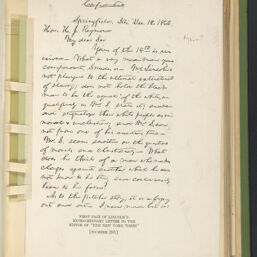 Confidential
Springfield, Ills. Dec. 18, 1860
Hon. H. J. Raymond
My dear Sir
Yours of the 14th is re-
ceived. What a very
Mr. Lincoln is
not pledged to the ultimate extinction
of slavery; does not hold the black
man to be the equal of the white,
unqualifiedly as Mr. S. states it; and
never did stigmatize their white people as
immoral & unchristian; and Mr. S.
not prove one of his assertions true.
Mr. S. seems sensitive on the question
of morals and christianity. What
does he think of a man who makes
charges against another which he does
not know to be true, and could easily
learn to be false?
As to the pitcher story, it is a forg-
ery out and out. I never made but
FIRST PAGE OF LINCOLN'S
EXTRAORDINARY LETTER TO THE
EDITOR OF "THE NEW YORK TIMES"